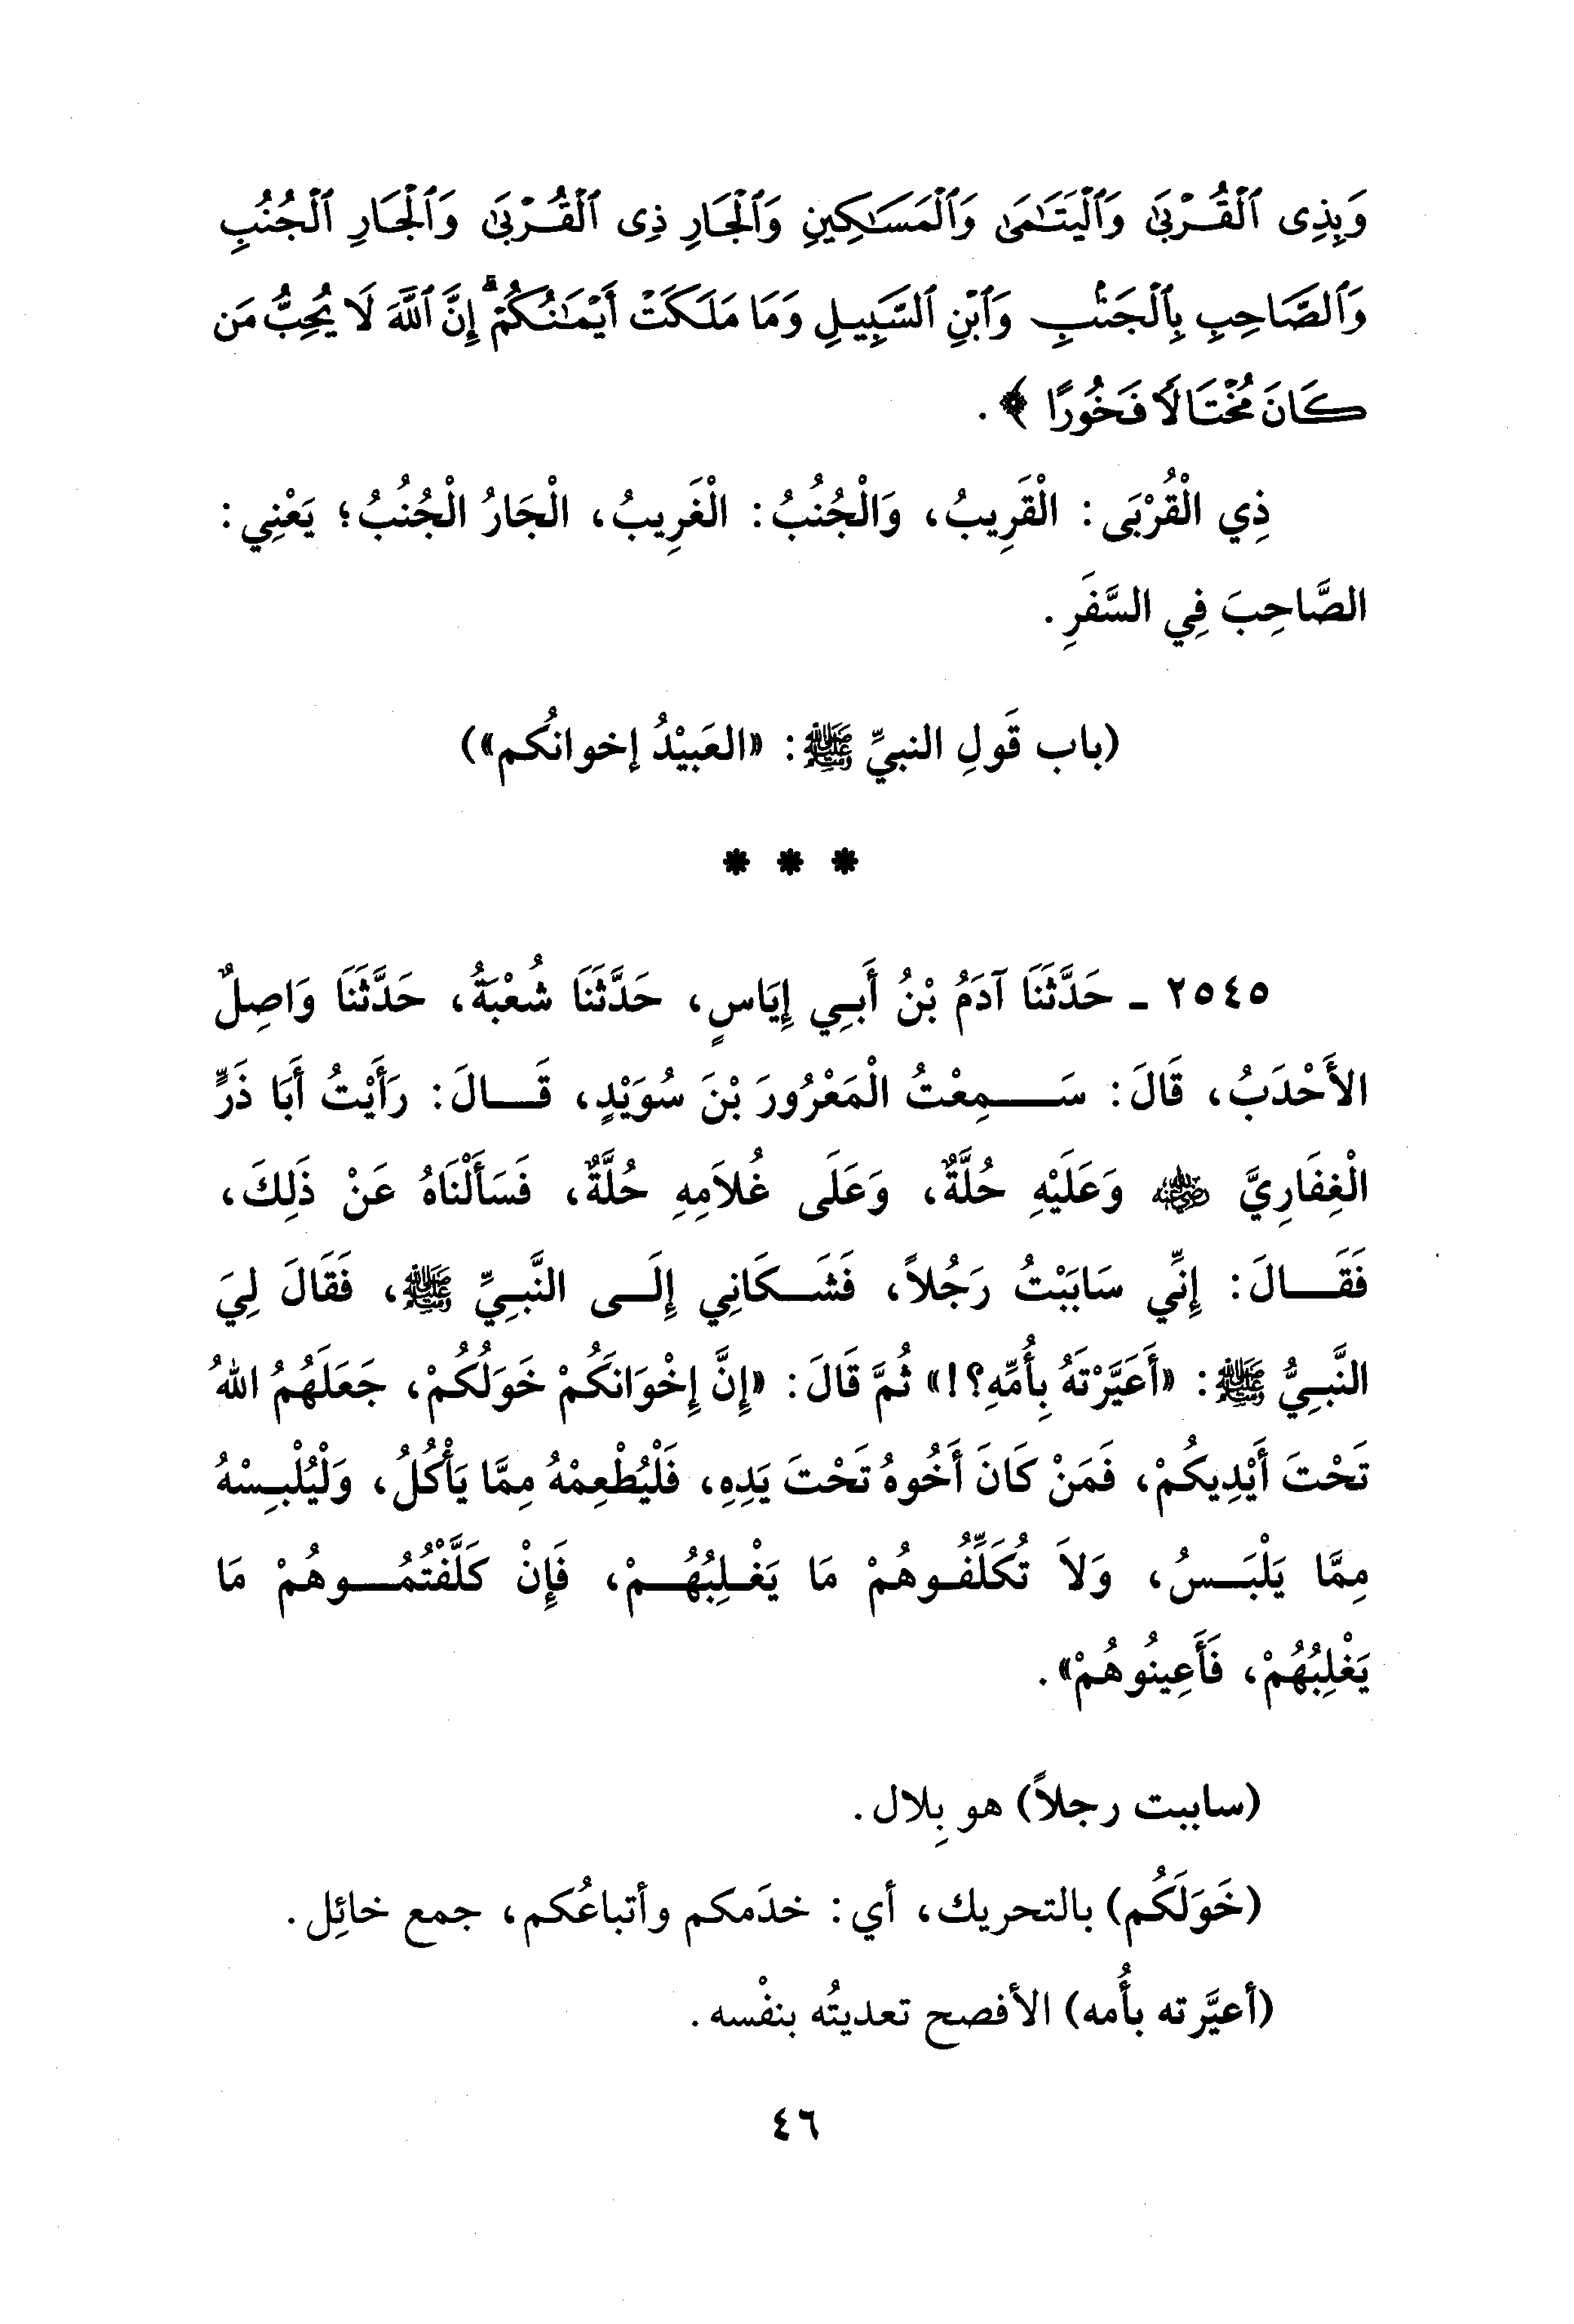 وَبِذِى ٱلْقُرْبَىٰ وَٱلْيَتَـٰمَىٰ وَٱلْمَسَـٰكِينِ وَٱلْجَارِ ذِى ٱلْقُرْبَىٰ وَٱلْجَارِ ٱلْجُنُبِ
وَٱلصَّاحِبِ بِٱلْجَنۢبِ وَٱبْنِ ٱلسَّبِيلِ وَمَا مَلَكَتْ أَيْمَـٰنُكُمْ ۗ إِنَّ ٱللَّهَ لَا يُحِبُّ مَن
كَانَ مُخْتَالًا فَخُورًا ﴾ .
ذِي الْقُرْبَى: الْقَرِيبُ، وَالْجُنُبُ: الْغَرِيبُ، الْجَارُ الْجُنُبُ؛ يَعْنِي:
الصَّاحِبَ فِي السَّفَرِ.
(باب قَولِ النبيِّ ﷺ: «العَبيْدُ إخوانُكم»)
* * *
٢٥٤٥ ـ حَدَّثَنَا آدَمُ بْنُ أَبِي إِيَاسٍ، حَدَّثَنَا شُعْبَةُ، حَدَّثَنَا وَاصِلٌ
الأَحْدَبُ، قَالَ: سَمِعْتُ الْمَعْرُورَ بْنَ سُوَيْدٍ، قَالَ: رَأَيْتُ أَبَا ذَرٍّ
الْغِفَارِيَّ رضي الله عنه وَعَلَيْهِ حُلَّةٌ، وَعَلَى غُلاَمِهِ حُلَّةٌ، فَسَأَلْنَاهُ عَنْ ذَلِكَ،
فَقَالَ: إِنِّي سَابَبْتُ رَجُلاً، فَشَكَانِي إِلَى النَّبِيِّ ﷺ، فَقَالَ لِيَ
النَّبِيُّ ﷺ: «أَعَيَّرْتَهُ بِأُمِّهِ؟!» ثُمَّ قَالَ: «إِنَّ إِخْوَانَكُمْ خَوَلُكُمْ، جَعَلَهُمُ اللهُ
تَحْتَ أَيْدِيكُمْ، فَمَنْ كَانَ أَخُوهُ تَحْتَ يَدِهِ، فَلْيُطْعِمْهُ مِمَّا يَأْكُلُ، وَلْيُلْبِسْهُ
مِمَّا يَلْبَسُ، وَلاَ تُكَلِّفُوهُمْ مَا يَغْلِبُهُمْ، فَإِنْ كَلَّفْتُمُوهُمْ مَا
يَغْلِبُهُمْ، فَأَعِينُوهُمْ».
(ساببت رجلاً) هو بِلال.
(خَوَلَكُم) بالتحريك، أي: خدَمكم وأتباعُكم، جمع خائِل.
(أعيَّرته بأُمه) الأفصح تعديتُه بنفْسه.
٤٦